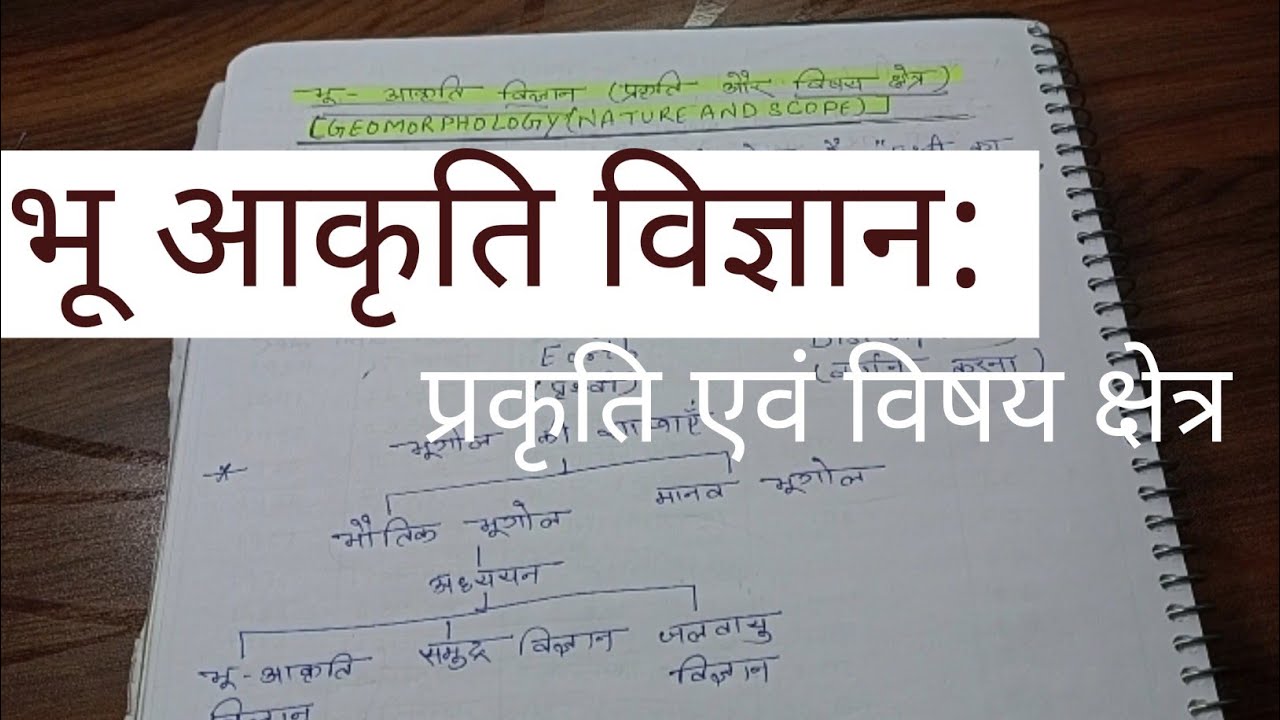 भू - आकृति विज्ञान (प्रकृति और विषय क्षेत्र)
[GEOMORPHOLOGY (NATURE AND SCOPE)]
का
भू आकृति विज्ञान:
प्रकृति एवं विषय क्षेत्र
Earth
(पृथ्वी)
(वर्णन करना)
* भूगोल की शाखाएँ
भौतिक भूगोल मानव भूगोल
अध्ययन
भू-आकृति समुद्र विज्ञान जलवायु
विज्ञान विज्ञान